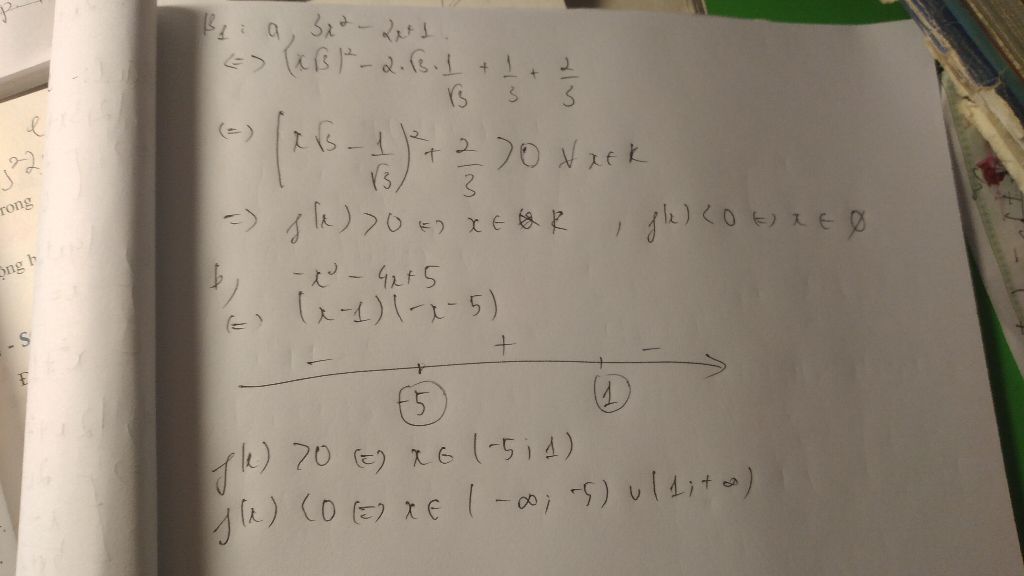 B1: a, 3x² - 2x+1.
<=> (x√3)² - 2.√3.1/√3 + 1/3 + 2/3
<=> (x√3 - 1/√3)² + 2/3 >0 ∀ x∈R
=> f(x) >0 <=> x ∈ R , f(x) <0 <=> x ∈ ∅
b, -x² - 4x+5
<=> (x-1)(-x-5)
- + -
-5 1
f(x) >0 <=> x∈ (-5;1)
f(x) <0 <=> x∈ (-∞; -5) ∪ (1;+∞)
rong
ộng h
- S